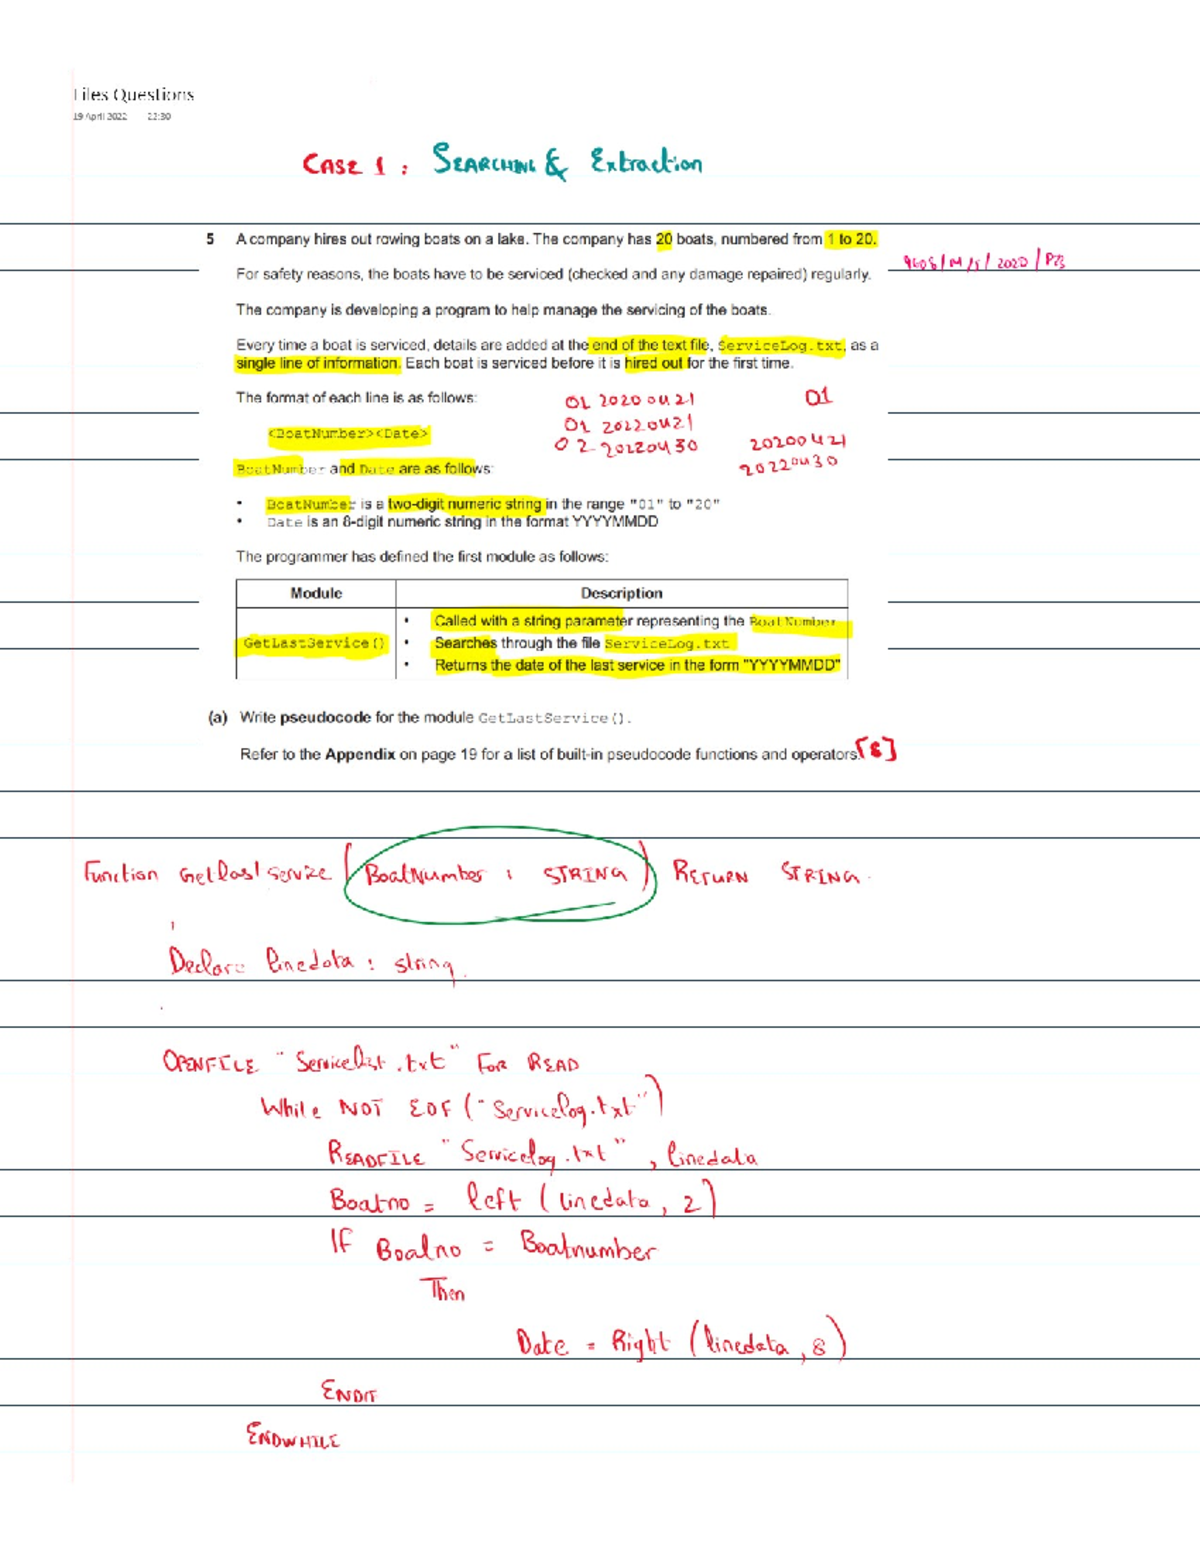 Files Questions
19 April 2022 22:30
CASE 1 : SEARCHING & Extraction
5 A company hires out rowing boats on a lake. The company has 20 boats, numbered from 1 to 20.
9608/M/J/2020/P23
For safety reasons, the boats have to be serviced (checked and any damage repaired) regularly.
The company is developing a program to help manage the servicing of the boats.
Every time a boat is serviced, details are added at the end of the text file, ServiceLog.txt, as a
single line of information. Each boat is serviced before it is hired out for the first time.
The format of each line is as follows:
01 20200421 01
01 20220421
<BoatNumber><Date>
02 20220430 20200421
20220430
BoatNumber and Date are as follows:
• BoatNumber is a two-digit numeric string in the range "01" to "20"
• Date is an 8-digit numeric string in the format YYYYMMDD
The programmer has defined the first module as follows:
Module Description
• Called with a string parameter representing the BoatNumber
GetLastService() • Searches through the file ServiceLog.txt
• Returns the date of the last service in the form "YYYYMMDD"
(a) Write pseudocode for the module GetLastService().
Refer to the Appendix on page 19 for a list of built-in pseudocode functions and operators. [8]
Function GetLastService (BoatNumber : STRING) RETURN STRING.
Declare linedata : string.
OPENFILE "Servicelist.txt" FOR READ
While NOT EOF ("Servicelog.txt")
READFILE "Servicelog.txt", linedata
Boatno = left (linedata, 2)
If Boatno = Boatnumber
Then
Date = Right (linedata, 8)
ENDIF
ENDWHILE